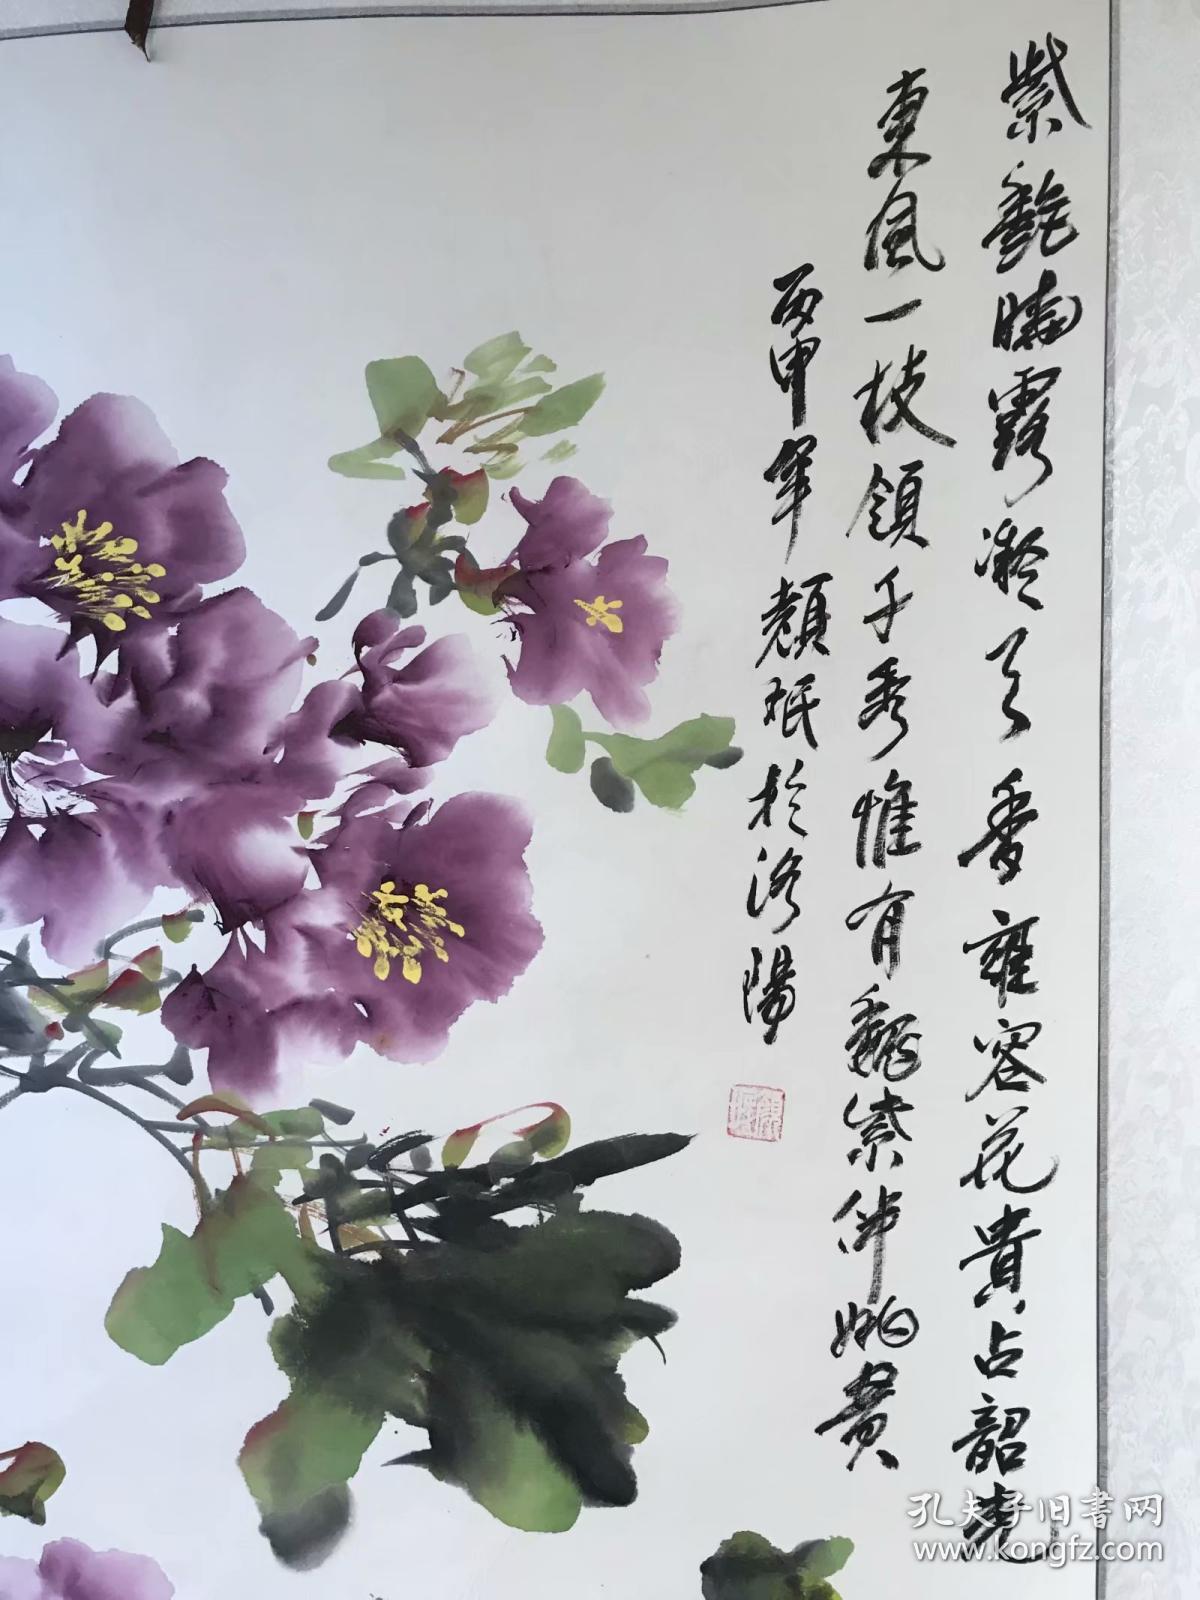 紫艷晴露凝天香雍容花貴占韶光
東風一枝領千秀惟有魏紫伴姚黃
丙申年顏珉於洛陽
孔夫子旧书网
www.kongfz.com